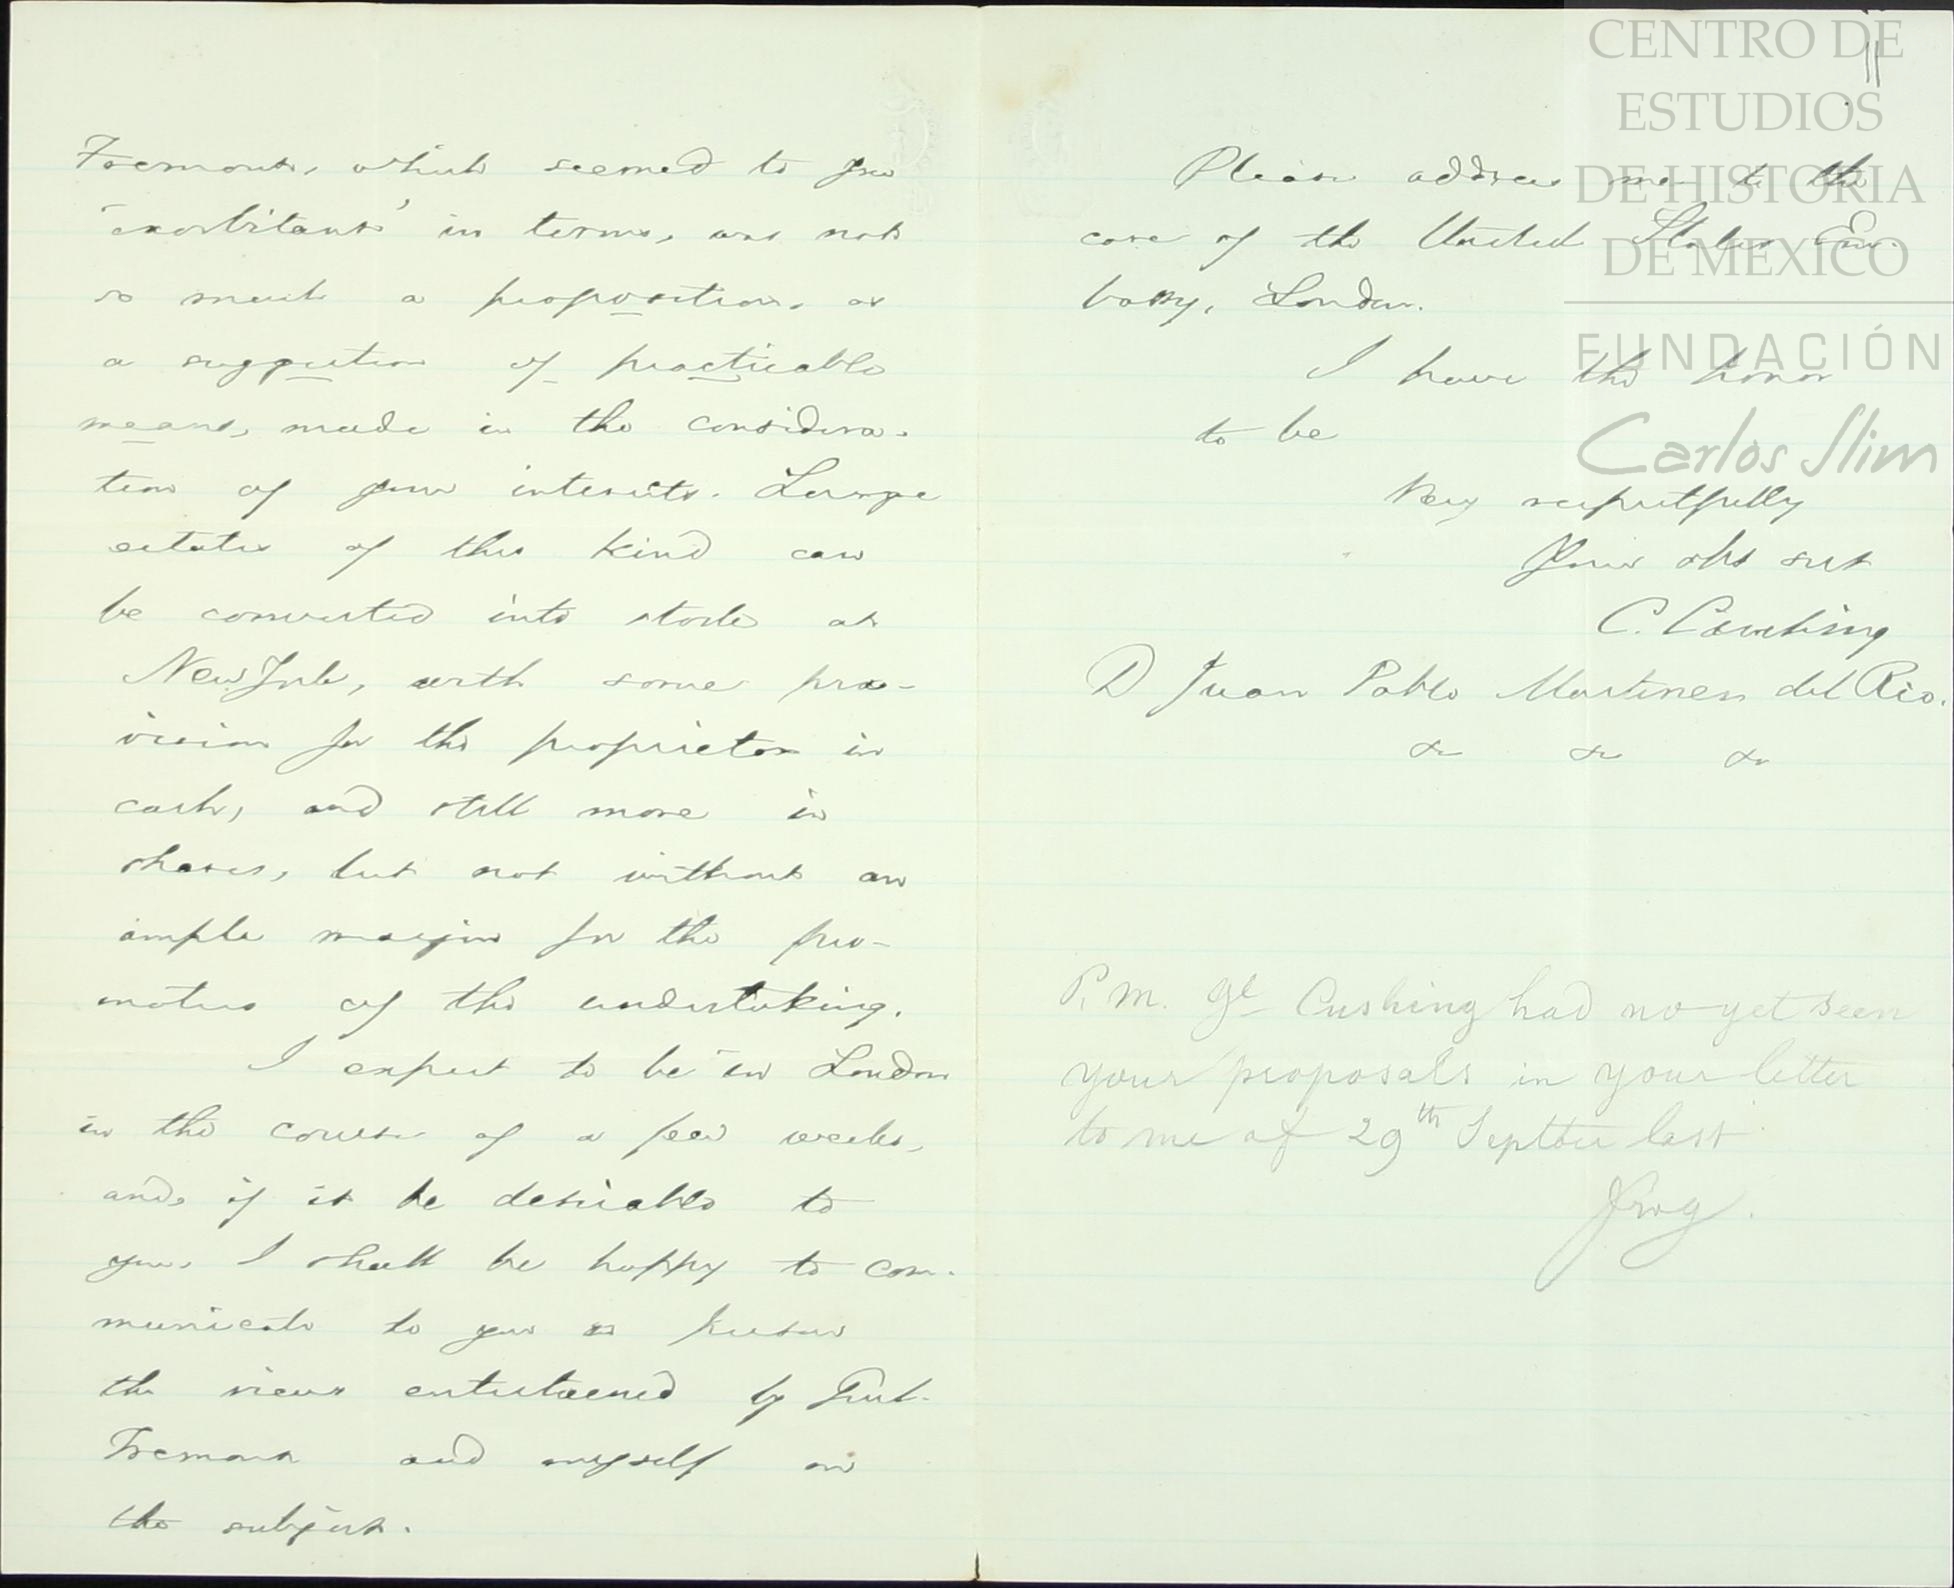 Fremont, which seemed to you
'exorbitant' in terms, was not
so much a proposition, as
a suggestion of practicable
means, made in the considera-
tion of your interests. Large
estates of this kind can
be converted into stocks at
New York, with some pro-
vision for the proprietor in
cash, and still more in
shares, but not without an
ample margin for the pro-
moters of the undertaking.
I expect to be in London
in the course of a few weeks,
and, if it be desirable to
you, I shall be happy to com-
municate to you in person
the views entertained by Genl.
Fremont and myself on
the subject.
Please address me to the
care of the United States Em-
bassy, London.
I have the honor
to be
Very respectfully
Your obt sert
C. Cushing
D Juan Pablo Martinez del Rio.
&c &c &c
P. M. Gl Cushing had no yet seen
your proposals in your letter
to me of 29th Septber last
11
CENTRO DE
ESTUDIOS
DE HISTORIA
DE MEXICO
FUNDACIÓN
Carlos Slim